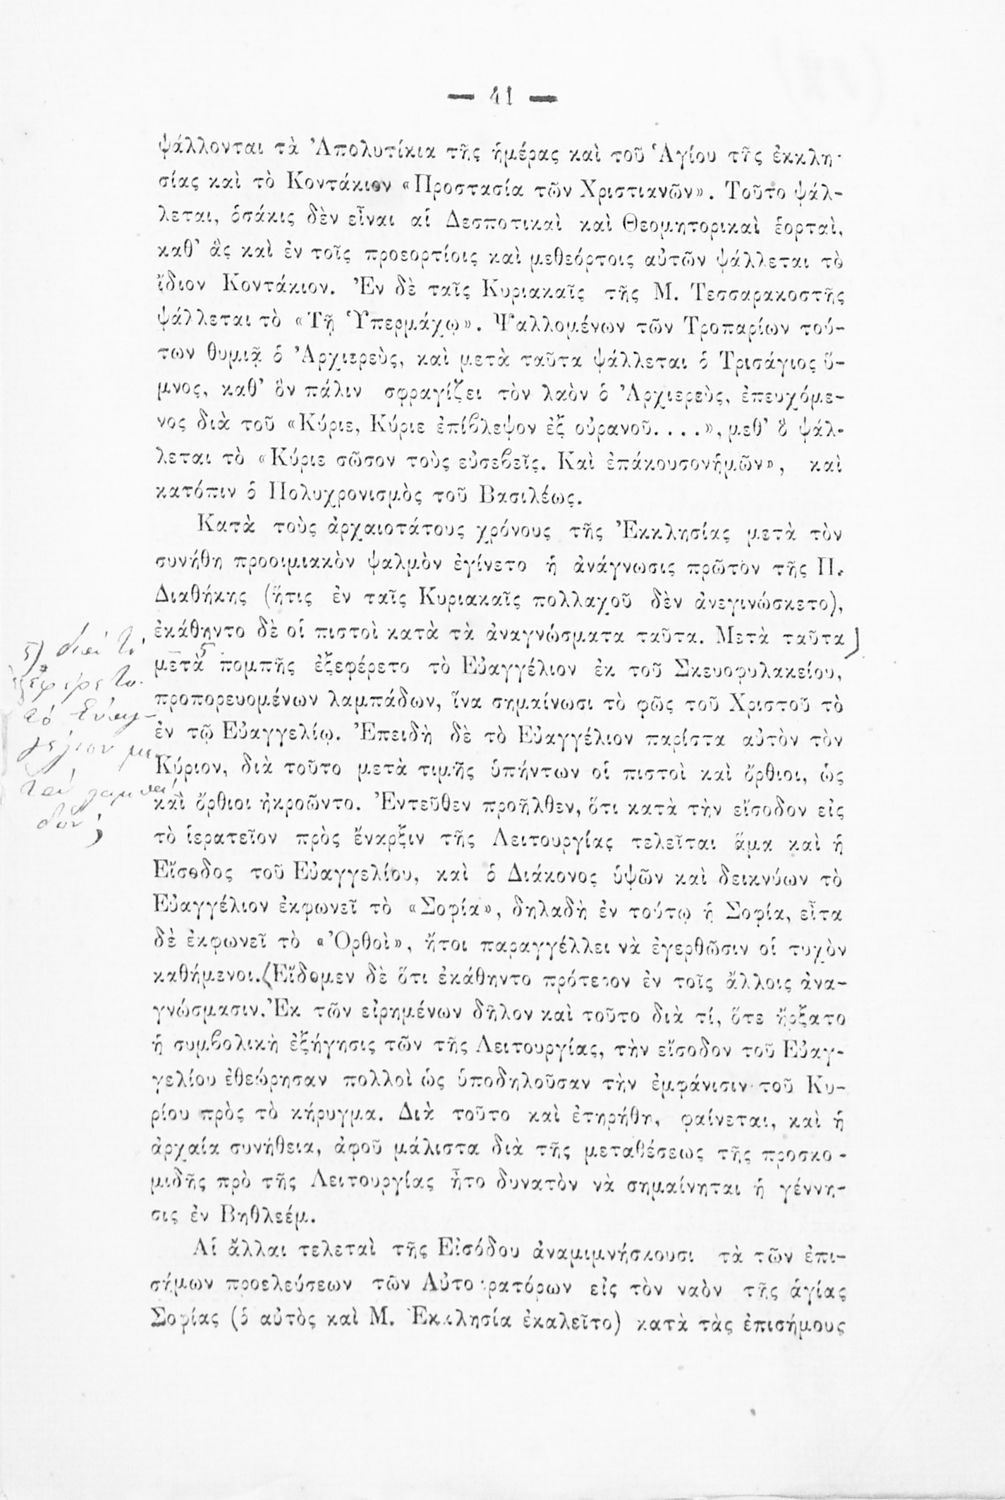 — 41 —
ψάλλονται τὰ Ἀπολυτίκια τῆς ἡμέρας καὶ τοῦ Ἁγίου τῆς ἐκκλη-
σίας καὶ τὸ Κοντάκιον «Προστασία τῶν Χριστιανῶν». Τοῦτο ψάλ-
λεται, ὁσάκις δὲν εἶναι αἱ Δεσποτικαὶ καὶ Θεομητορικαὶ ἑορταὶ,
καθ’ ἃς καὶ ἐν τοῖς προεορτίοις καὶ μεθεόρτοις αὐτῶν ψάλλεται τὸ
ἴδιον Κοντάκιον. Ἐν δὲ ταῖς Κυριακαῖς τῆς Μ. Τεσσαρακοστῆς
ψάλλεται τὸ «Τῇ Ὑπερμάχῳ». Ψαλλομένων τῶν Τροπαρίων τού-
των θυμιᾷ ὁ Ἀρχιερεὺς, καὶ μετὰ ταῦτα ψάλλεται ὁ Τρισάγιος ὕ-
μνος, καθ’ ὃν πάλιν σφραγίζει τὸν λαὸν ὁ Ἀρχιερεὺς, ἐπευχόμε-
νος διὰ τοῦ «Κύριε, Κύριε ἐπίβλεψον ἐξ οὐρανοῦ....», μεθ’ ὃ ψάλ-
λεται τὸ «Κύριε σῶσον τοὺς εὐσεβεῖς. Καὶ ἐπάκουσονἡμῶν», καὶ
κατόπιν ὁ Πολυχρονισμὸς τοῦ Βασιλέως.
Κατὰ τοὺς ἀρχαιοτάτους χρόνους τῆς Ἐκκλησίας μετὰ τὸν
συνήθη προοιμιακὸν ψαλμὸν ἐγίνετο ἡ ἀνάγνωσις πρῶτον τῆς Π.
Διαθήκης (ἥτις ἐν ταῖς Κυριακαῖς πολλαχοῦ δὲν ἀνεγινώσκετο),
ἐκάθηντο δὲ οἱ πιστοὶ κατὰ τὰ ἀναγνώσματα ταῦτα. Μετὰ ταῦτα
μετὰ πομπῆς ἐξεφέρετο τὸ Εὐαγγέλιον ἐκ τοῦ Σκευοφυλακείου,
προπορευομένων λαμπάδων, ἵνα σημαίνωσι τὸ φῶς τοῦ Χριστοῦ τὸ
ἐν τῷ Εὐαγγελίῳ. Ἐπειδὴ δὲ τὸ Εὐαγγέλιον παρίστα αὐτὸν τὸν
Κύριον, διὰ τοῦτο μετὰ τιμῆς ὑπήντων οἱ πιστοὶ καὶ ὄρθιοι, ὡς
καὶ ὄρθιοι ἠκροῶντο. Ἐντεῦθεν προῆλθεν, ὅτι κατὰ τὴν εἴσοδον εἰς
τὸ ἱερατεῖον πρὸς ἔναρξιν τῆς Λειτουργίας τελεῖται ἅμα καὶ ἡ
Εἴσοδος τοῦ Εὐαγγελίου, καὶ ὁ Διάκονος ὑψῶν καὶ δεικνύων τὸ
Εὐαγγέλιον ἐκφωνεῖ τὸ «Σοφία», δηλαδὴ ἐν τούτῳ ἡ Σοφία, εἶτα
δὲ ἐκφωνεῖ τὸ «Ὀρθοὶ», ἤτοι παραγγέλλει νὰ ἐγερθῶσιν οἱ τυχὸν
καθήμενοι.(Εἴδομεν δὲ ὅτι ἐκάθηντο πρότερον ἐν τοῖς ἄλλοις ἀνα-
γνώσμασιν. Ἐκ τῶν εἰρημένων δῆλον καὶ τοῦτο διὰ τί, ὅτε ἤρξατο
ἡ συμβολικὴ ἐξήγησις τῶν τῆς Λειτουργίας, τὴν εἴσοδον τοῦ Εὐαγ-
γελίου ἐθεώρησαν πολλοὶ ὡς ὑποδηλοῦσαν τὴν ἐμφάνισιν τοῦ Κυ-
ρίου πρὸς τὸ κήρυγμα. Διὰ τοῦτο καὶ ἐτηρήθη, φαίνεται, καὶ ἡ
ἀρχαία συνήθεια, ἀφοῦ μάλιστα διὰ τῆς μεταθέσεως τῆς προσκο-
μιδῆς πρὸ τῆς Λειτουργίας ἦτο δυνατὸν νὰ σημαίνηται ἡ γέννη-
σις ἐν Βηθλεέμ.
Αἱ ἄλλαι τελεταὶ τῆς Εἰσόδου ἀναμιμνήσκουσι τὰ τῶν ἐπι-
σήμων προελεύσεων τῶν Αὐτοκρατόρων εἰς τὸν ναὸν τῆς ἁγίας
Σοφίας (ὁ αὐτὸς καὶ Μ. Ἐκκλησία ἐκαλεῖτο) κατὰ τὰς ἐπισήμους
5) διατί
τὸ Εὐαγ-
γέλιον με